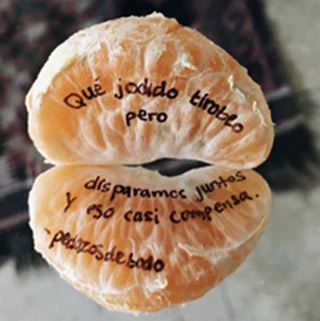 Qué jodido tiroteo
pero
disparamos juntos
Y eso casi compensa.
- pedazosdebodo